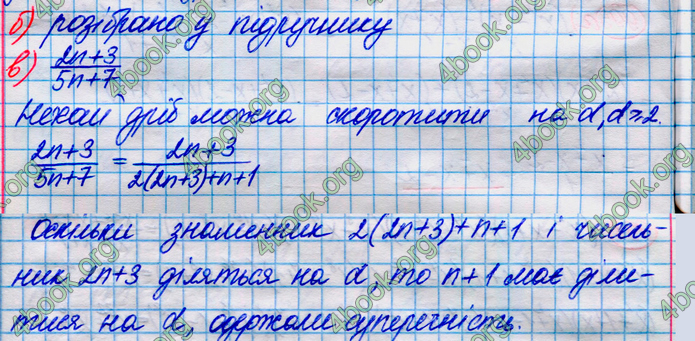 б) розібрано у підручнику
в) 2n+3 / 5n+7
Нехай дріб можна скоротити на d, d≥2.
2n+3 / 5n+7 = 2n+3 / 2(2n+3)+n+1
Оскільки знаменник 2(2n+3)+n+1 і чисель-
ник 2n+3 діляться на d, то n+1 має діли-
тися на d, одержали суперечність.
4book.org